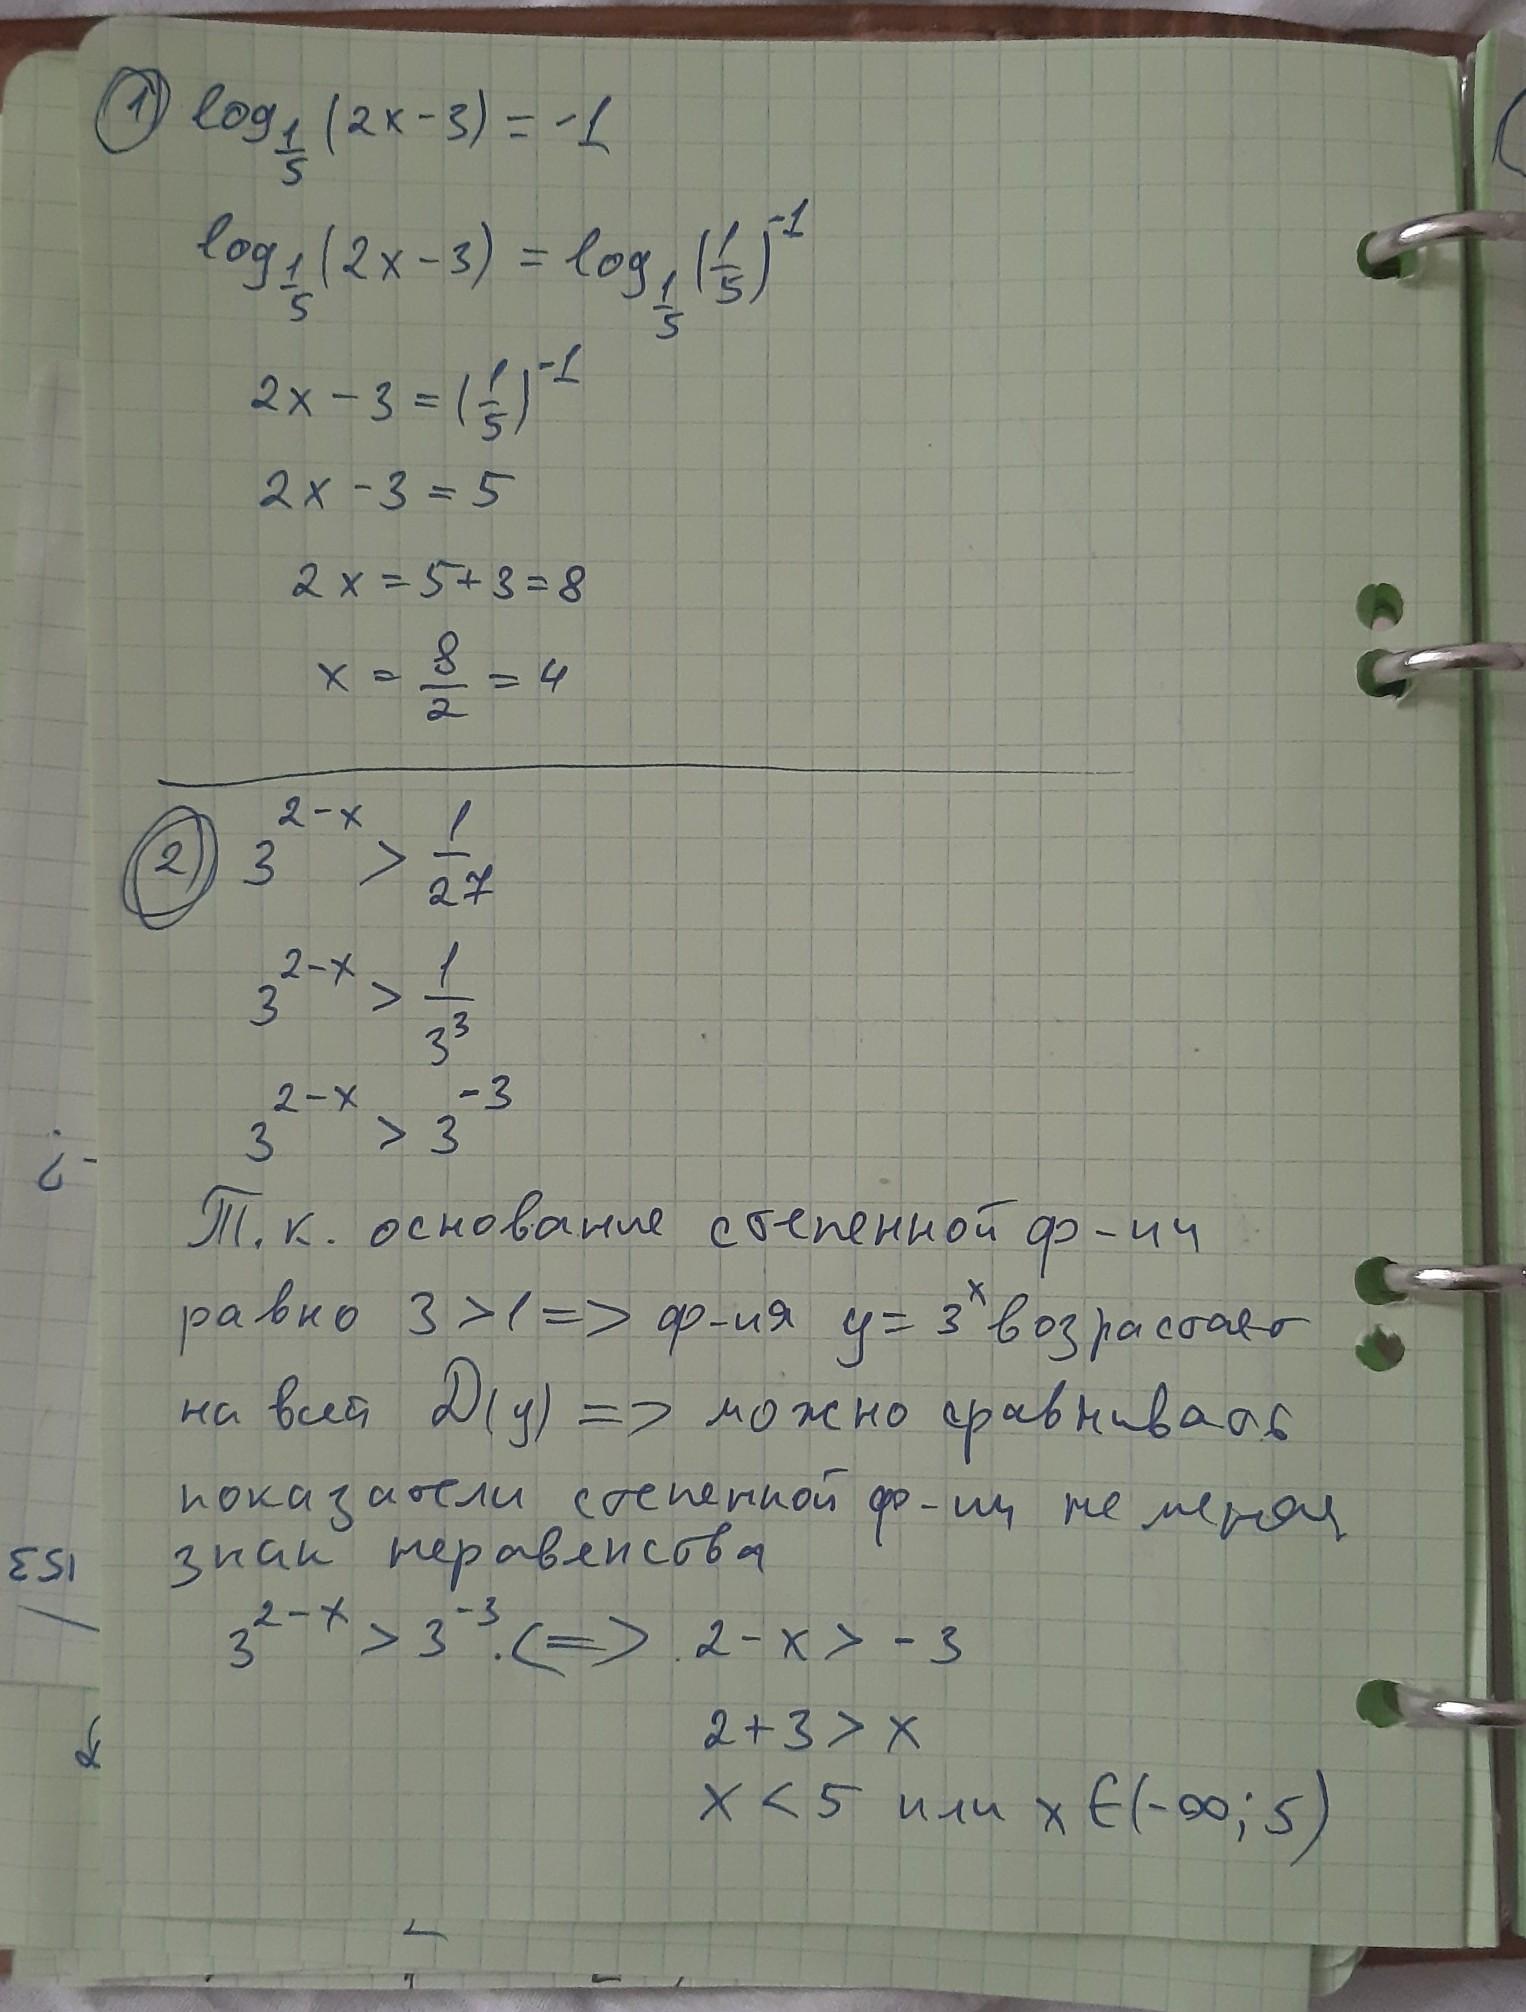 1 log_{1/5} (2x-3) = -1
log_{1/5} (2x-3) = log_{1/5} (1/5)^{-1}
2x-3 = (1/5)^{-1}
2x-3 = 5
2x = 5+3 = 8
x = 8/2 = 4
2 3^{2-x} > 1/27
3^{2-x} > 1/3^3
3^{2-x} > 3^{-3}
Т.к. основание степенной ф-ии
равно 3>1 => ф-ия y=3^x возрастает
на всей D(y) => можно сравнивать
показатели степенной ф-ии не меняя
знак неравенства
3^{2-x} > 3^{-3} <=> 2-x > -3
2+3 > x
x < 5 или x ∈ (-∞; 5)